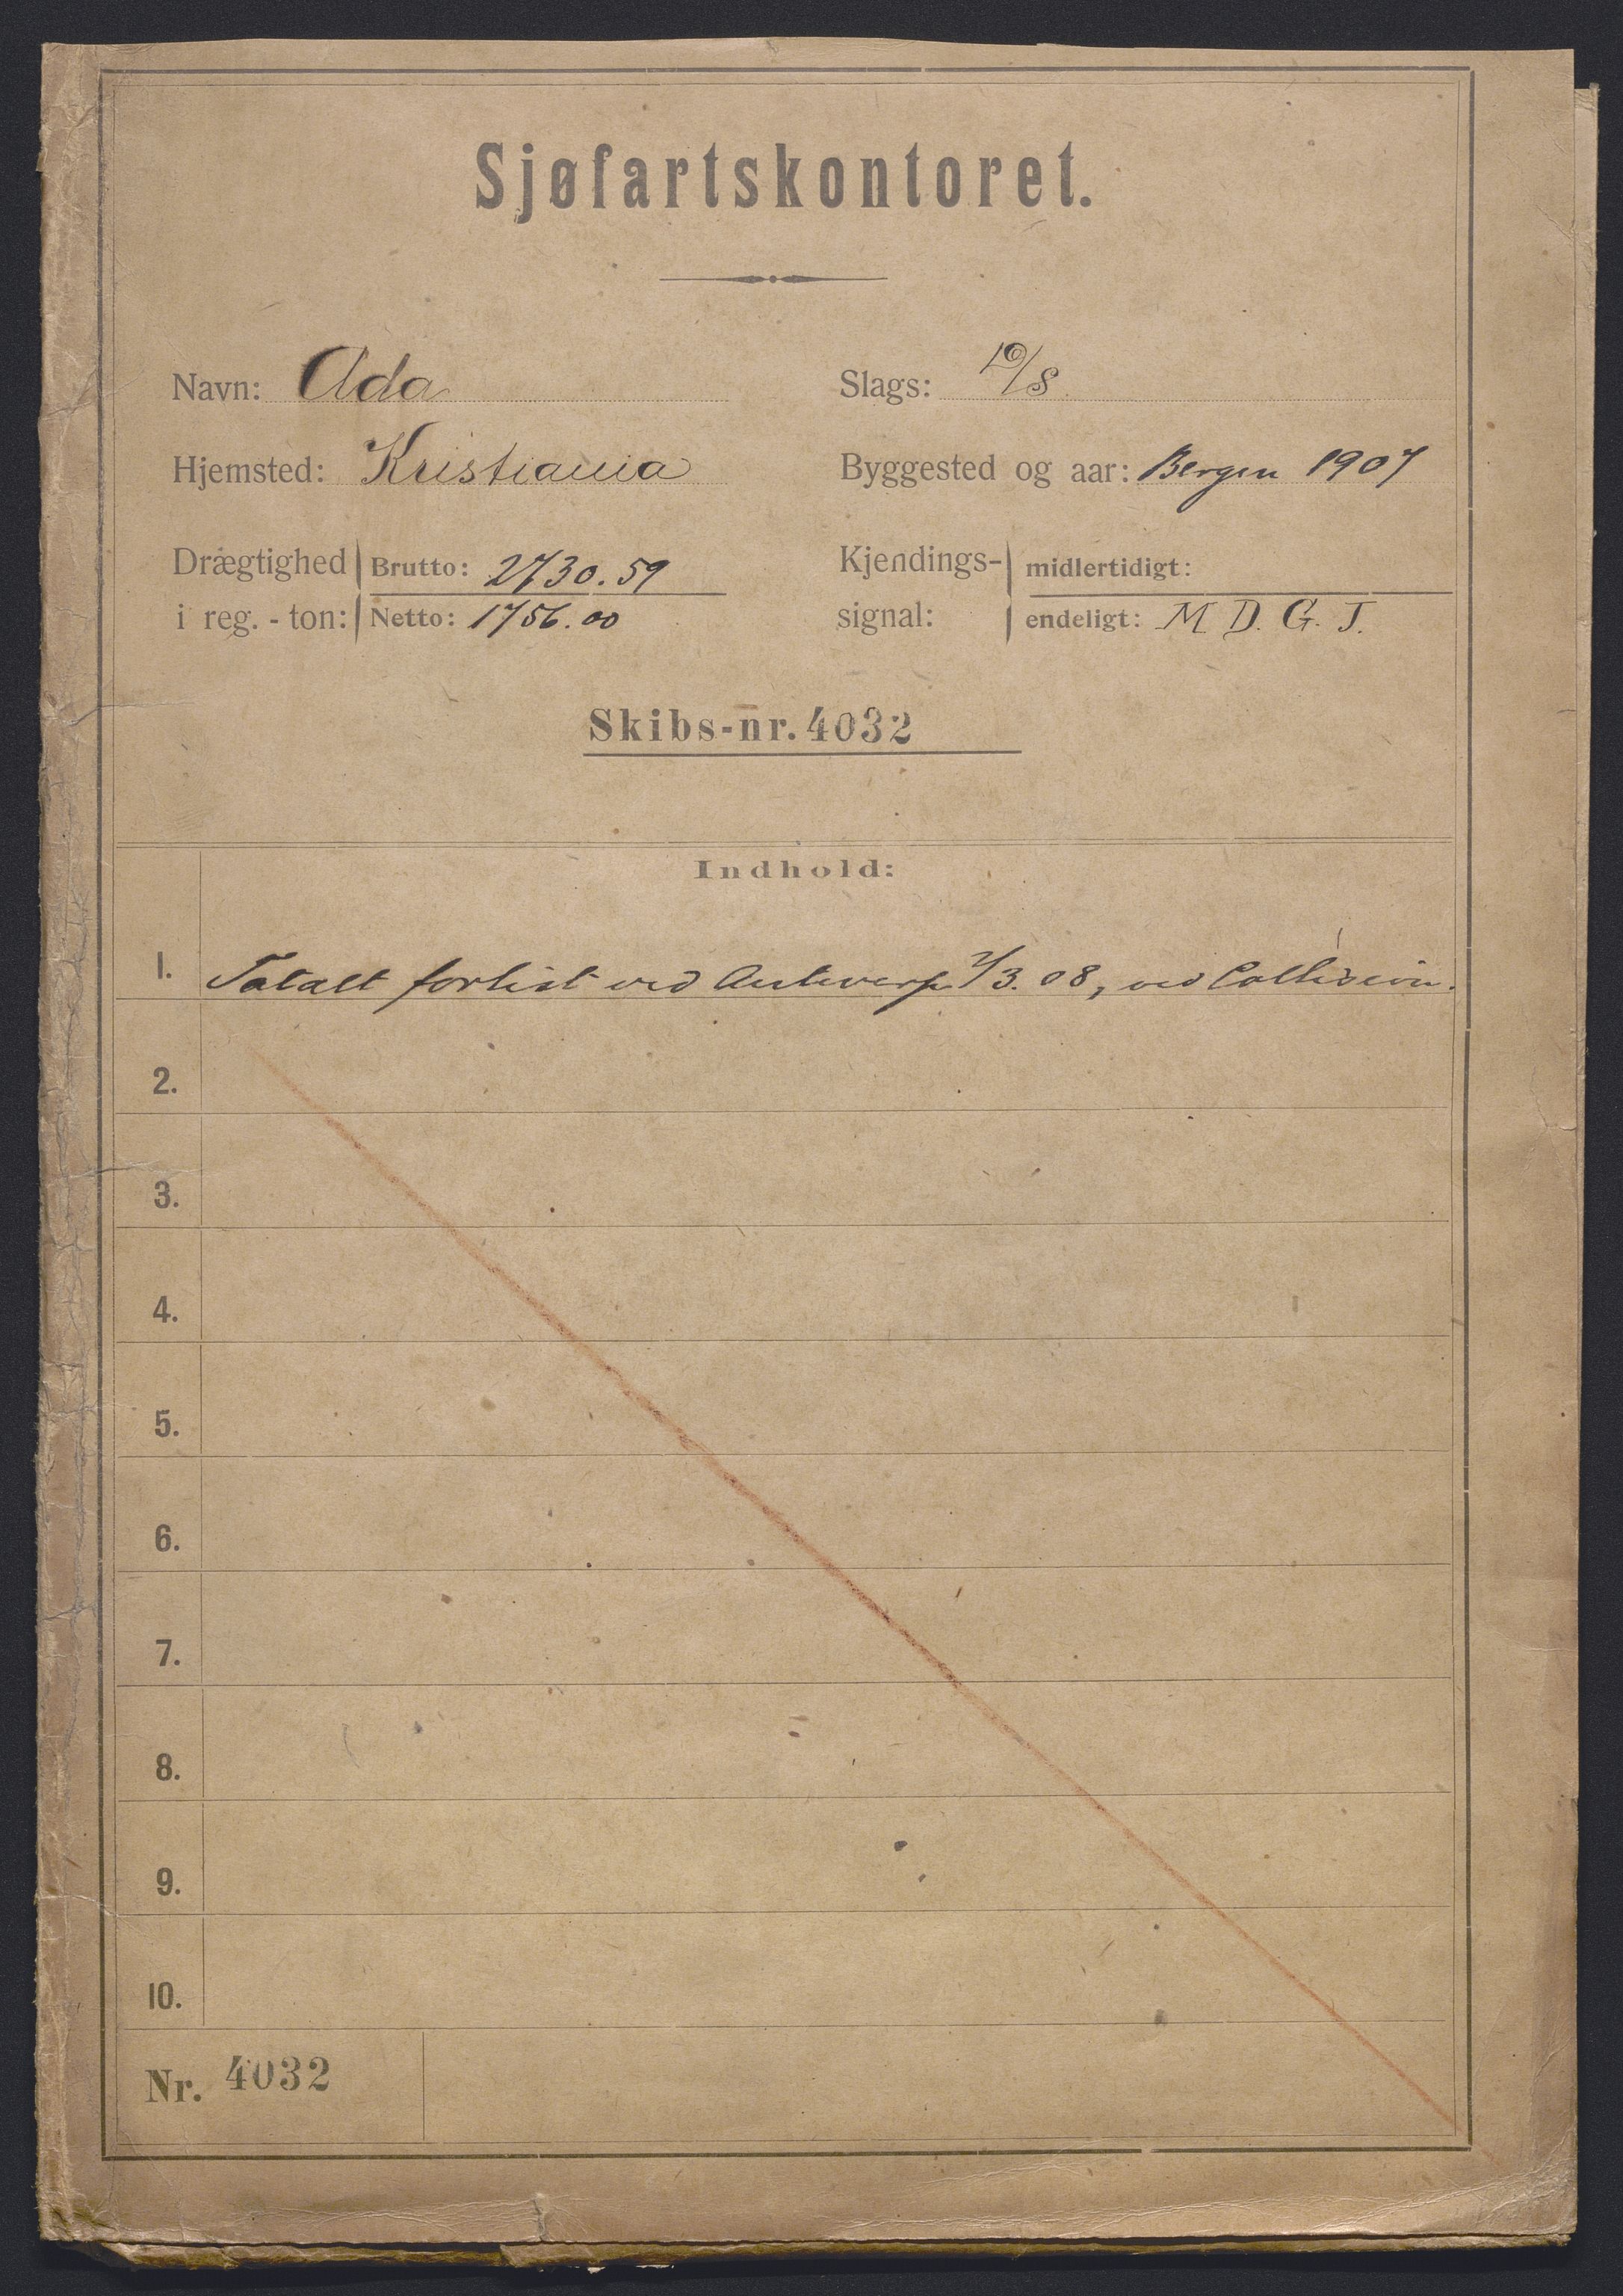 Sjøfartskontoret.
Navn: Ada
Slags: D/S
Hjemsted: Kristiania
Byggested og aar: Bergen 1907
Drægtighed i reg.-ton: Brutto: 2730.59
Netto: 1756.00
Kjendings-signal: midlertidigt:
endeligt: M. D. G. J.
Skibs-nr. 4032
Indhold:
1. Totalt forlist ved Antwerp. /3. 08, ved Collision.
2.
3.
4.
5.
6.
7.
8.
9.
10.
Nr. 4032